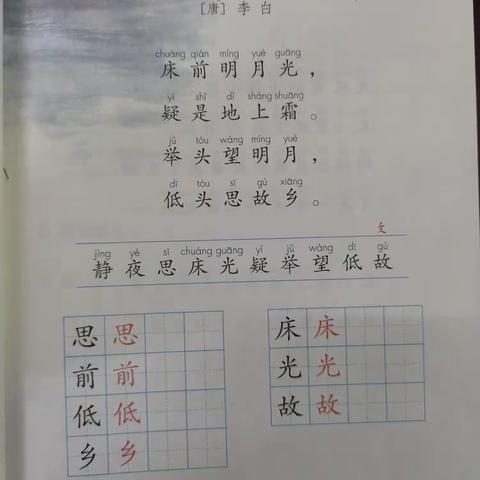 [唐] 李白
chuáng qián míng yuè guāng
床前明月光，
yí shì dì shàng shuāng
疑是地上霜。
jǔ tóu wàng míng yuè
举头望明月，
dī tóu sī gù xiāng
低头思故乡。
攵
jìng yè sī chuáng guāng yí jǔ wàng dī gù
静夜思床光疑举望低故
思 思
前 前
低 低
乡 乡
床 床
光 光
故 故